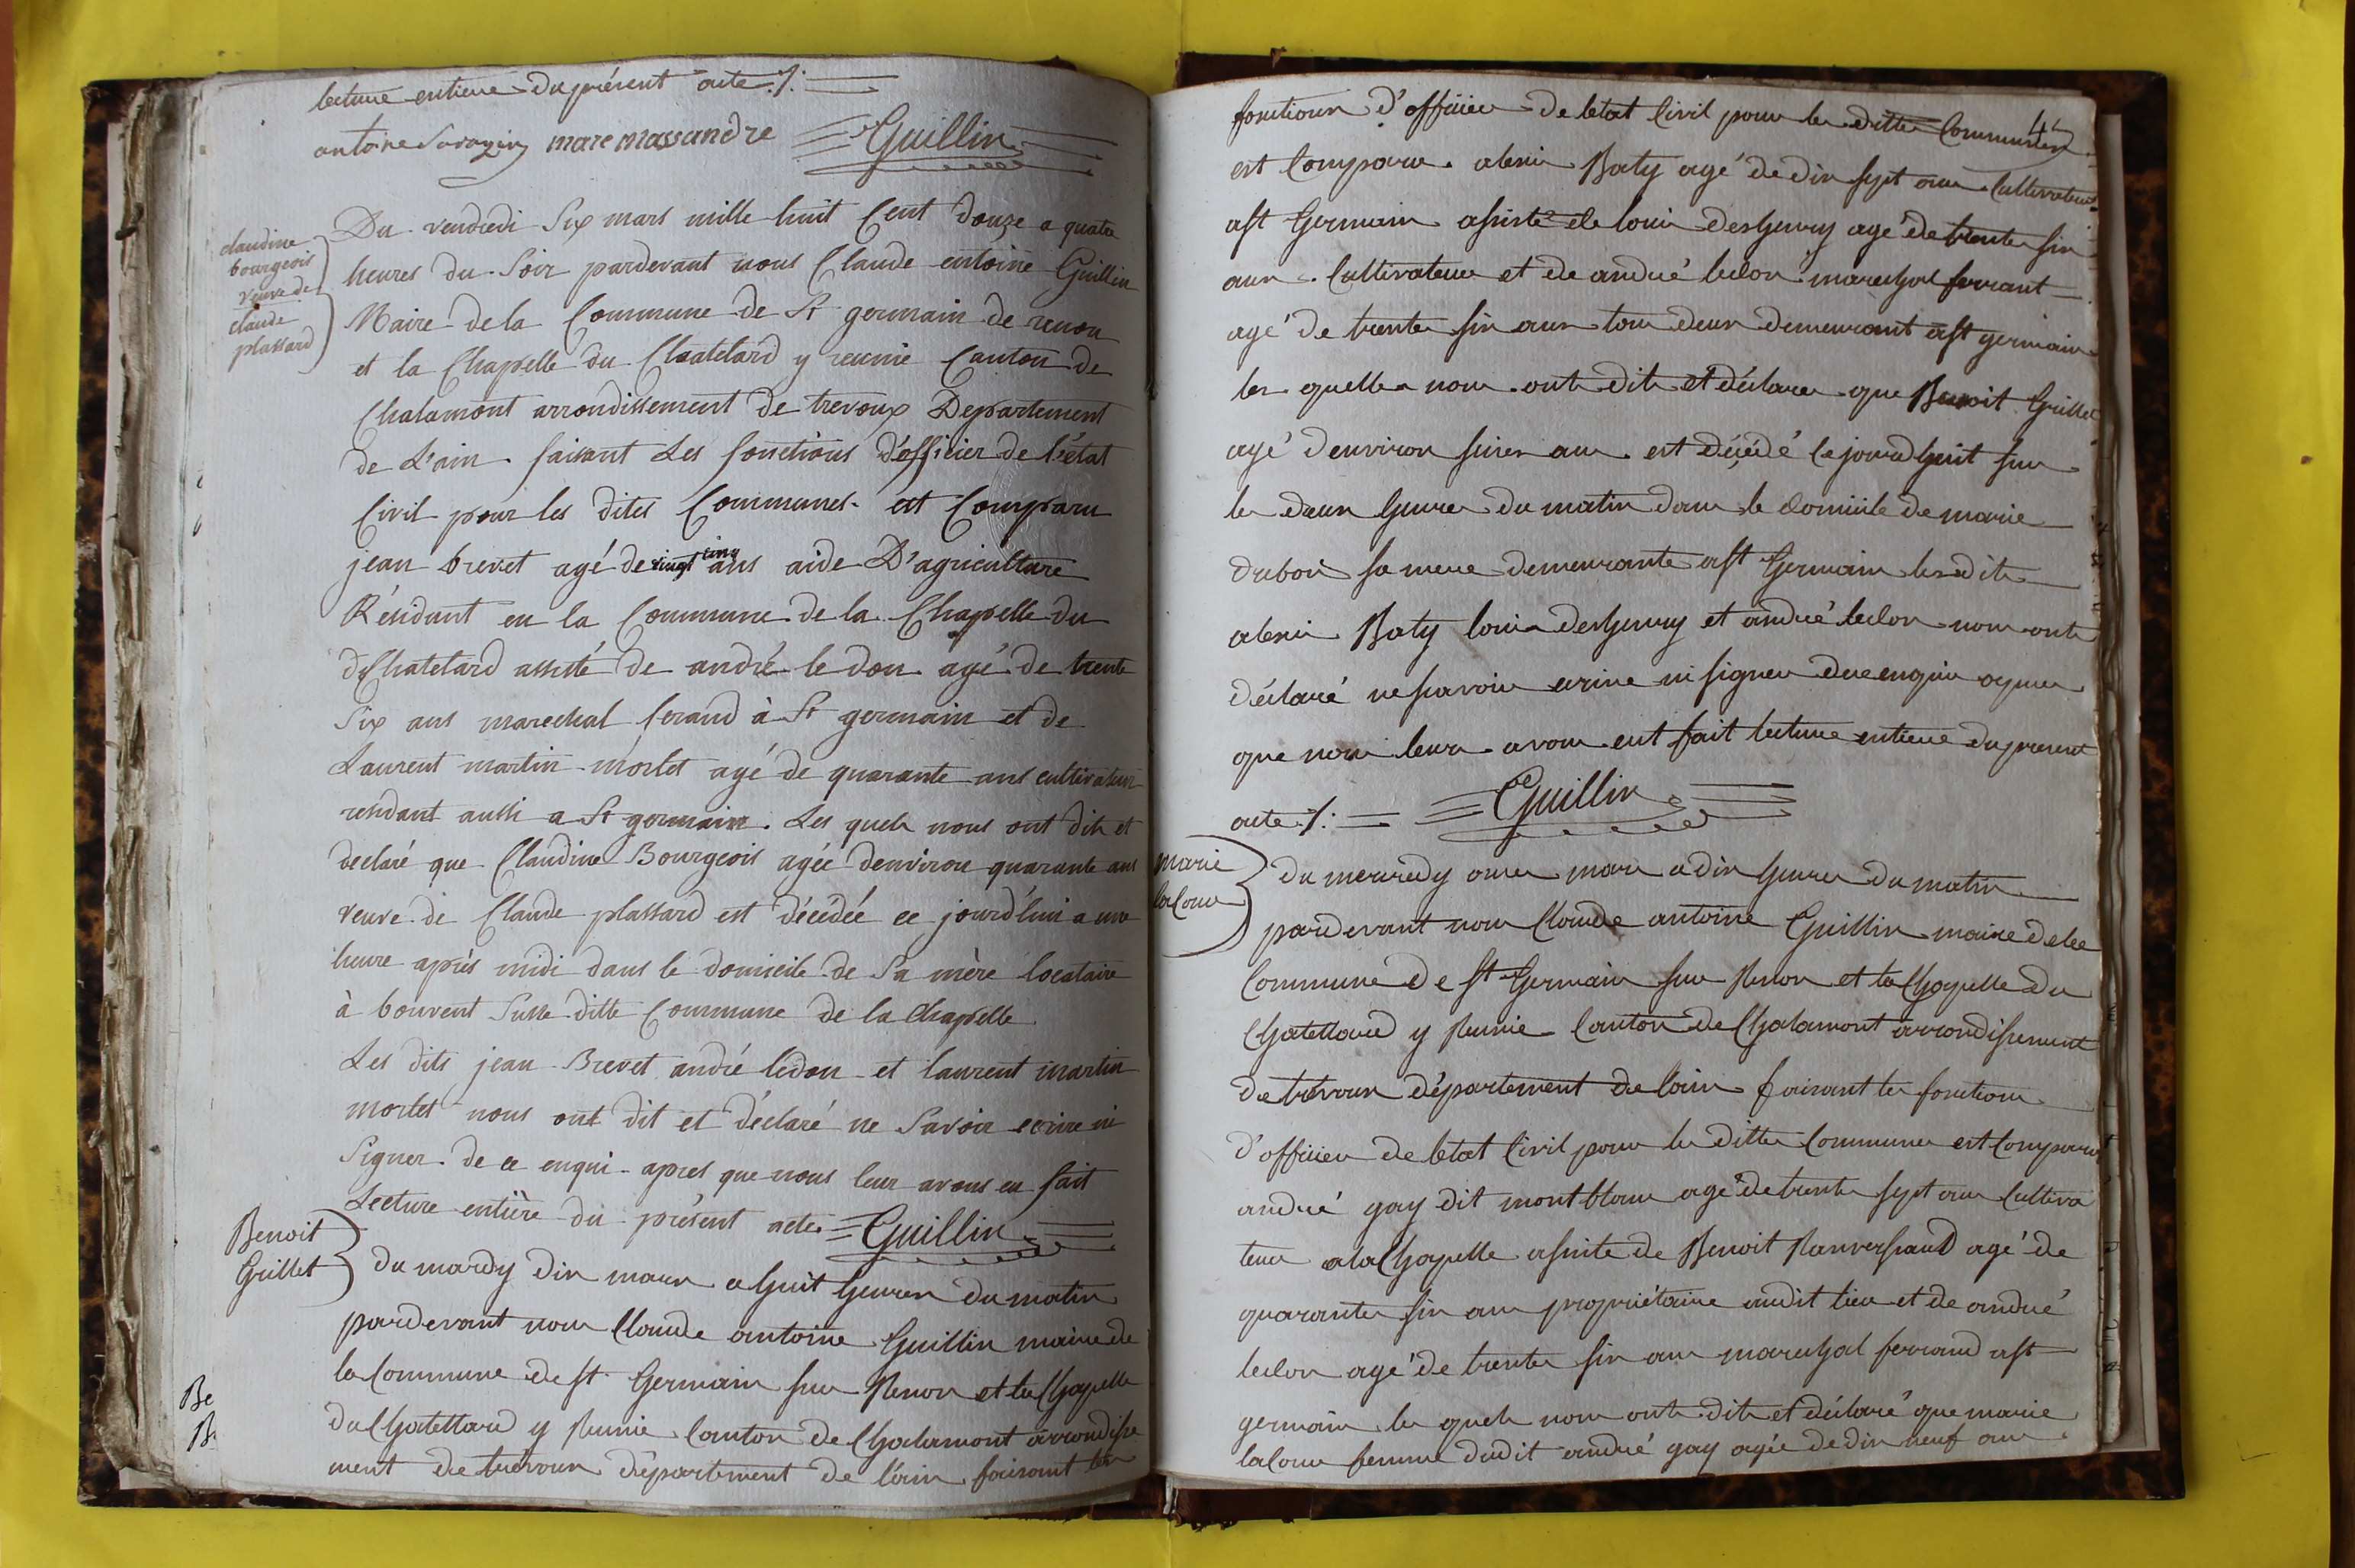 lecture entiere du présent acte ./.
antoine Sarazin marc massandre Guillin
claudine
bourgeois
veuve de
claude
plassard
Du vendredi Six mars mille huit Cent douze a quatre
heures du Soir pardevant nous Claude antoine Guillin
Maire de la Commune de St germain de renon
et la Chapelle du Chatelard y reunie Canton de
Chalamont arrondissement de trevoux Departement
de L'ain faisant Les fonctions d'officier de l'état
Civil pour les dites Communes est Comparu
jean brevet agé de vingt cinq ans aide D'agriculture
Résidant en la Commune de la Chapelle du
Chatelard assisté de andré le don agé de trente
Six ans marechal ferand à St germain et de
Laurent martin mortet agé de quarante ans cultivateur
residant aussi a St germain. Les quels nous ont dit et
declaré que Claudine Bourgeois agée denviron quarante ans
veuve de Claude plassard est décédée ce jourd'hui a une
heure après midi dans le domicile de Sa mère locataire
à bouvent Susse ditte Commune de la Chapelle
Les dits jean Brevet andré ledon et laurent martin
mortet nous ont dit et déclaré ne Savoir ecrire ni
Signer de ce enqui apres que nous leur avons eu fait
Lecture entière du présent acte Guillin
Benoit
Grillet
du mardy dix mars a huit heures du matin
pardevant nous Claude antoine Guillin maire de
la Commune de st Germain sur Renon et la Chapelle
du Chatellard y Runie Canton de Chalamont arrondisse
ment de trévoux département de l'ain faisant les
Be
4
fonctions d'officier de letat Civil pour les dittes Communes
est Comparu alexis Baty agé de dix sept ans Cultivateur
a st Germain assisté de louis deshenry agé de trente six
ans Cultivateur et de andré ledon marechal ferrant
agé de trente six ans tous deux demeurant a st germain
les quelles nous ont dit et déclare que Benoit Grillet
agé d'environ seizes ans est décédé ce jourd'huit sur
les deux heures du matin dans le domicile de marie
dubois sa mere demeurante a st Germain les dits
alexis Baty louis deshenry et andré ledon nous ont
déclaré ne savoir ecrire ni signer de ce enquis apres
que nous leurs avons eut fait lecture entiere du present
acte ./. Guillin
marie
lacour
du mercredy onze mars a dix heures du matin
pardevant nous Claude antoine Guillin maire de la
Commune de st Germain sur Renon et la Chapelle du
Chatellard y Runie Canton de Chalamont arrondissement
de trévoux département de lain faisant les fonctions
d'officier de letat Civil pour les dittes Communes est Comparut
andré gay dit montblanc agé de trente sept ans Cultiva
teur a la Chapelle assisté de Benoit Ranversaud agé de
quarante six ans propriétaire audit lieu et de andré
ledon agé de trente six ans marechal ferrand a st
germain les quels nous ont dit et déclaré que marie
lacour femme dudit andré gay agée de dix neuf ans